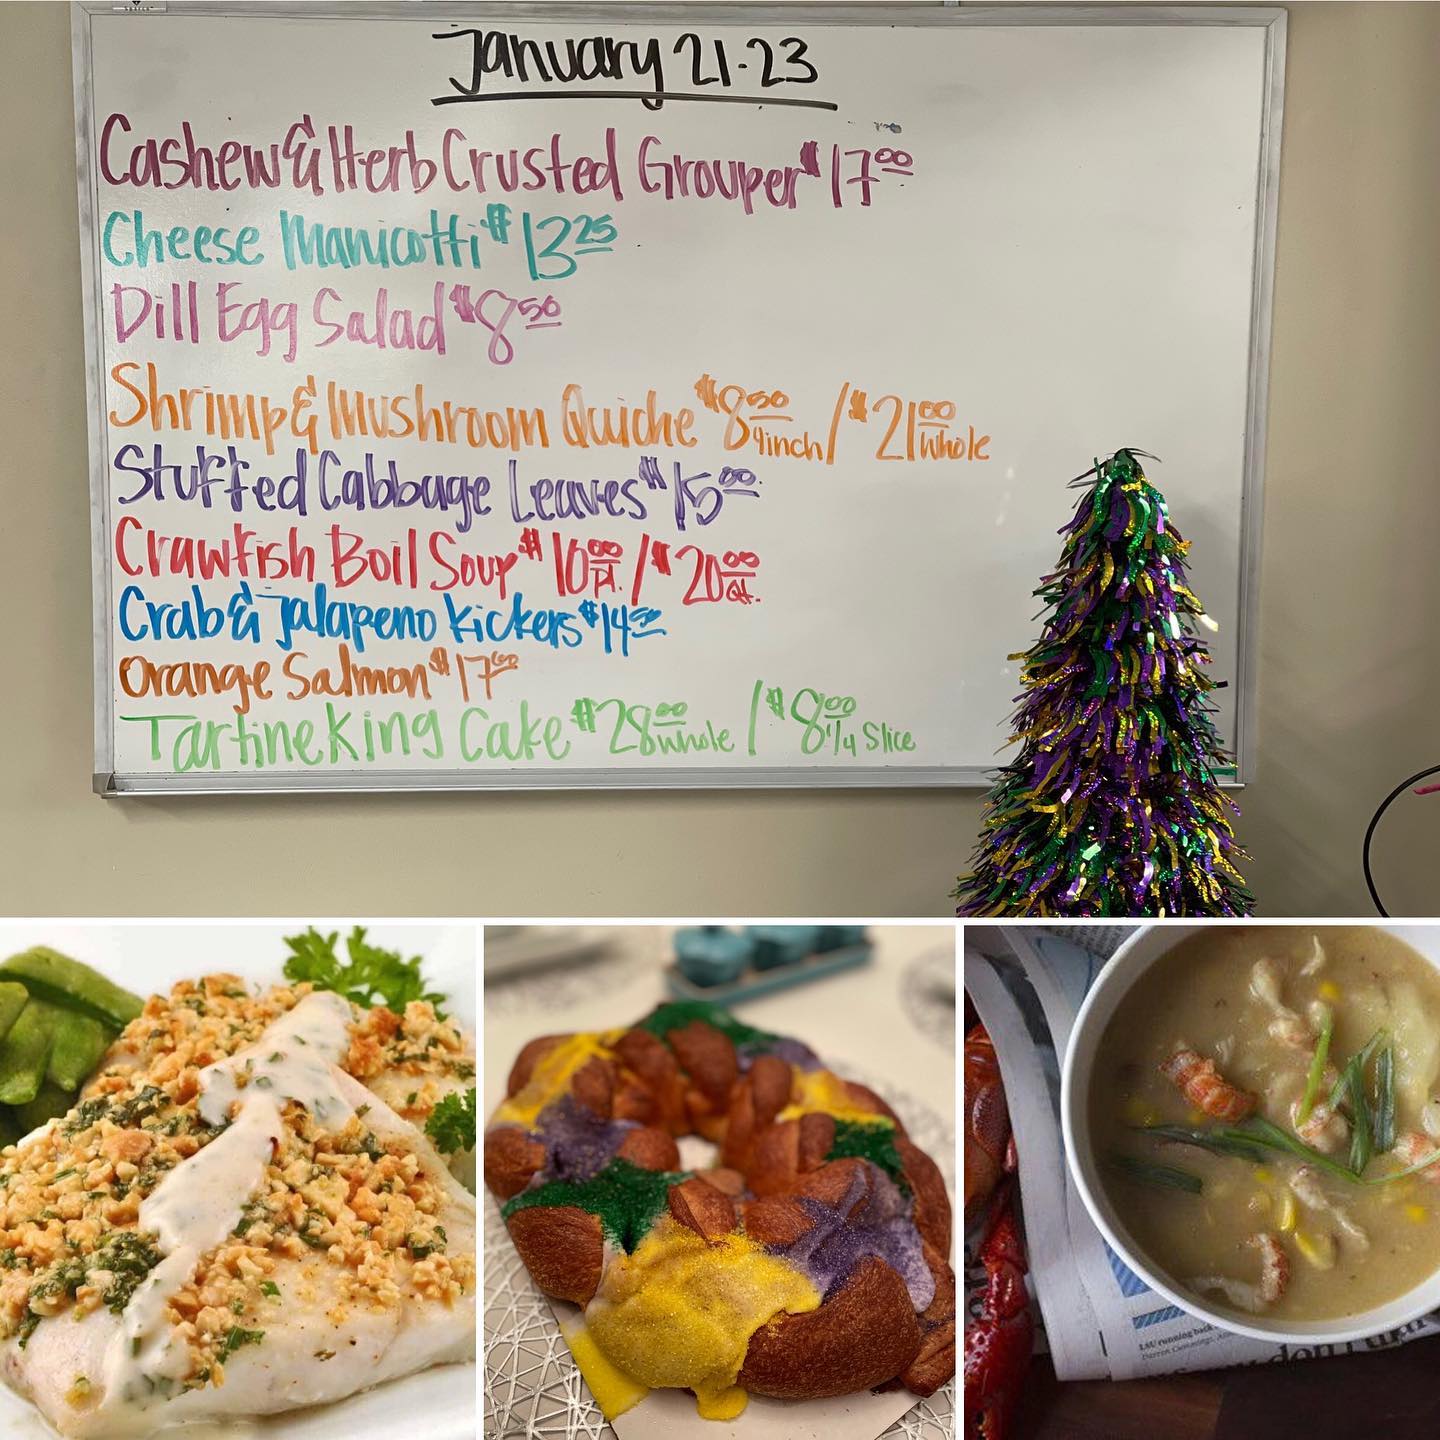 January 21-23
Cashew & Herb Crusted Grouper $17.00
Cheese Manicotti $13.25
Dill Egg Salad $8.50
Shrimp & Mushroom Quiche $8.50 4inch / $21.00 whole
Stuffed Cabbage Leaves $15.00
Crawfish Boil Soup $10.00 Pt. / $20.00 Qt.
Crab & Jalapeno Kickers $14.50
Orange Salmon $17.00
Tartine King Cake $28.00 whole / $8.00 1/4 Slice
LSU running back